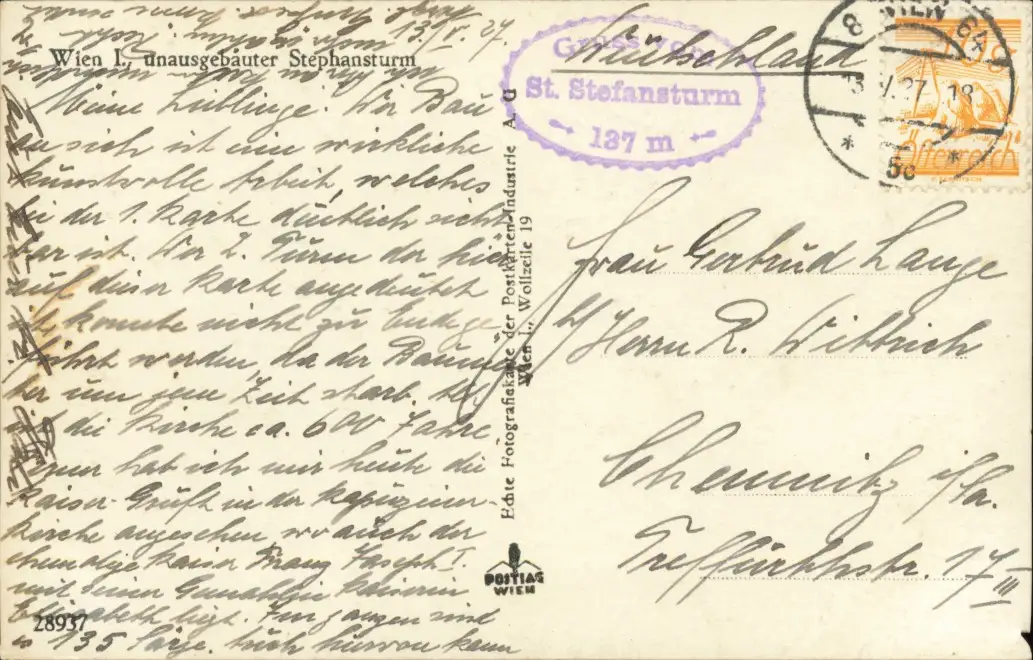 13./V. 27.
Wien I., unausgebauter Stephansturm
Meine Lieblinge. Der Bau
an sich ist eine wirkliche
kunstvolle Arbeit, welches
bei der 1. Karte deutlich sicht
bar ist. Der 2. Turm der hier
auf dieser Karte angedeutet
ist, konnte nicht zu Ende ge
führt werden, da der Baumei
ster um jene Zeit starb.
ist die Kirche ca. 600 Jahre
nun hab ich mir heute die
Kaiser-Gruft in der Kapuziner-
kirche angesehen, wo auch der
ehemalige Kaiser Franz Joseph I.
mit seiner Gemahlin Kaiserin
Elisabeth liegt. Im ganzen sind
es 135 Särge. Auch hiervon kann
28937
Echte Fotografiekarte der Postkarten-Industrie A. G
Wien I., Wollzeile 19
POSTIAG
WIEN
Gruss vom
St. Stefansturm
137 m
Deutschland
8 WIEN 64
13. V. 27 18
* 5c *
Österreich
Frau Gertrud Lange
b/ Herrn R. Wittrich
Chemnitz i/Sa.
Treffurthstr. 17 III